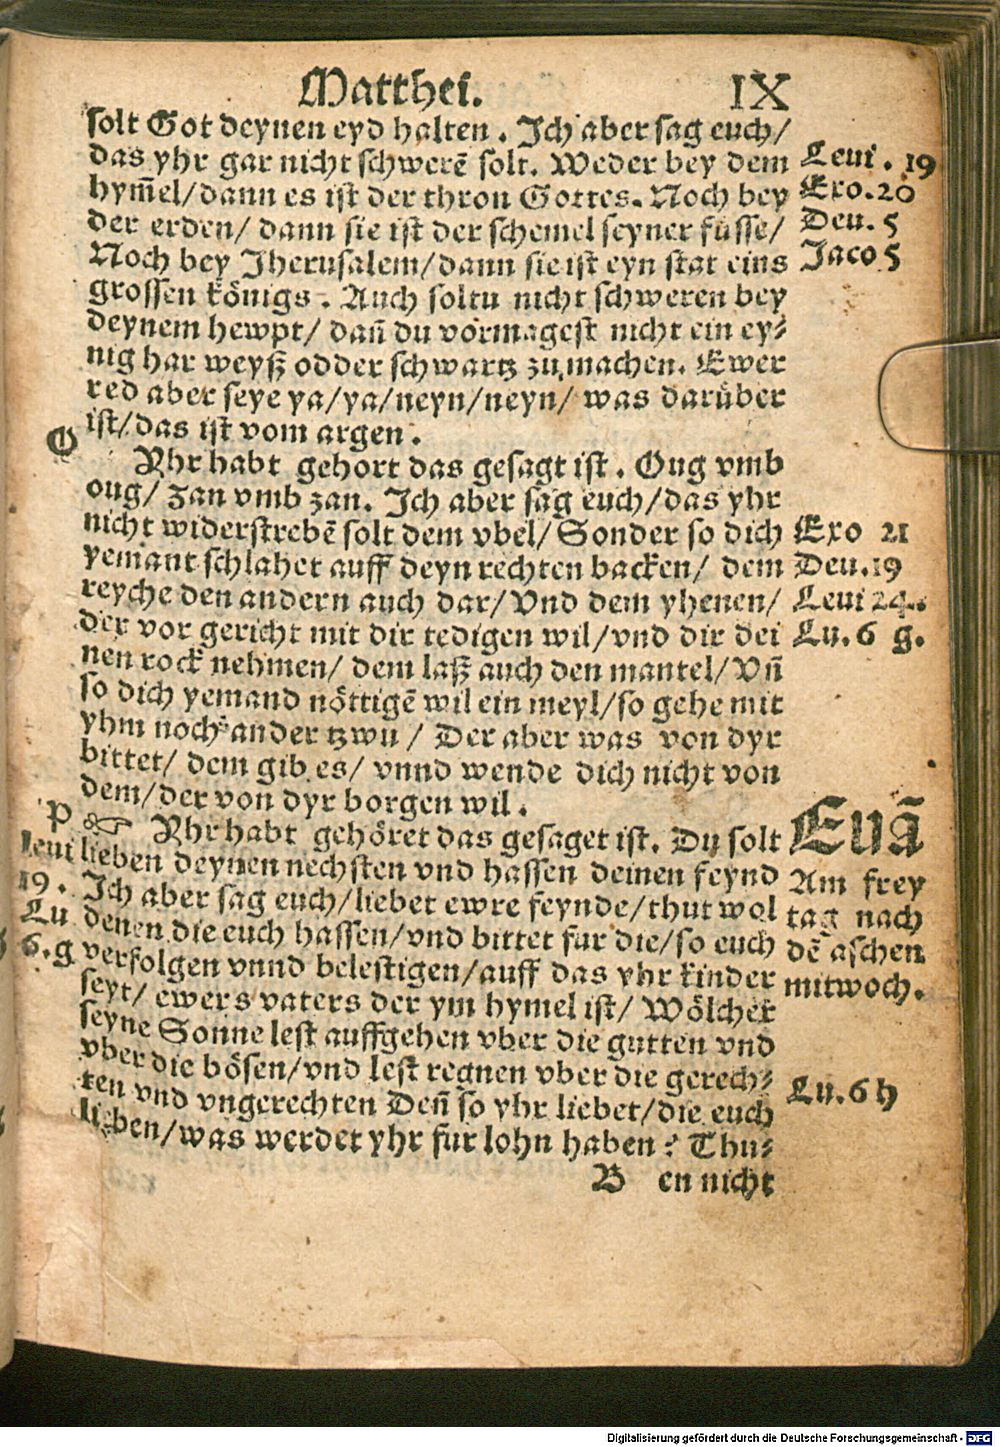 Matthei. IX
solt Got deynen eyd halten. Ich aber sag euch/
das yhr gar nicht schwerē solt. Weder bey dem
hym̄el/dann es ist der thron Gottes. Noch bey
der erden/ dann sie ist der schemel seyner füsse/
Noch bey Jherusalem/dann sie ist eyn stat eins
grossen königs. Auch soltu nicht schweren bey
deynem hewpt/ dañ du vormagest nicht ein ey⸗
nig har weyß odder schwartz zu machen. Ewer
red aber seye ya/ya/neyn/neyn/ was darüber
ist/das ist vom argen.
Leui. 19
Exo.20
Deu. 5
Jaco 5
O
Yhr habt gehort das gesagt ist. Oug vmb
oug/ zan vmb zan. Ich aber sag euch/das yhr
nicht widerstrebē solt dem vbel/Sonder so dich
yemant schlahet auff deyn rechten backen/ dem
reyche den andern auch dar/ Vnd dem yhenen/
der vor gericht mit dir tedigen wil/vnd dir dei
nen rock nehmen/ dem laß auch den mantel/Vñ
so dich yemand nöttigē wil ein meyl/so gehe mit
yhm noch ander tzwu/ Der aber was von dyr
bittet/ dem gib es/ vnnd wende dich nicht von
dem/der von dyr borgen wil.
Exo 21
Deu.19
Leui 24.
Lu. 6 g.
P
☞ Yhr habt gehöret das gesaget ist. Du solt
lieben deynen nechsten vnd hassen deinen feynd
Ich aber sag euch/liebet ewre feynde/thut wol
denen die euch hassen/vnd bittet fur die/so euch
verfolgen vnnd belestigen/auff das yhr kinder
seyt/ ewers vaters der ym hymel ist/ Wölcher
seyne Sonne lest auffgehen vber die gutten vnd
vber die bösen/vnd lest regnen vber die gerech⸗
ten vnd vngerechten Deñ so yhr liebet/die euch
lieben/was werdet yhr fur lohn haben? Thu⸗
Leui
19.
Lu
6.g
Euā
Am frey
tag nach
dē aschen
mitwoch.
Lu.6 h
B en nicht
Digitalisierung gefördert durch die Deutsche Forschungsgemeinschaft - DFG